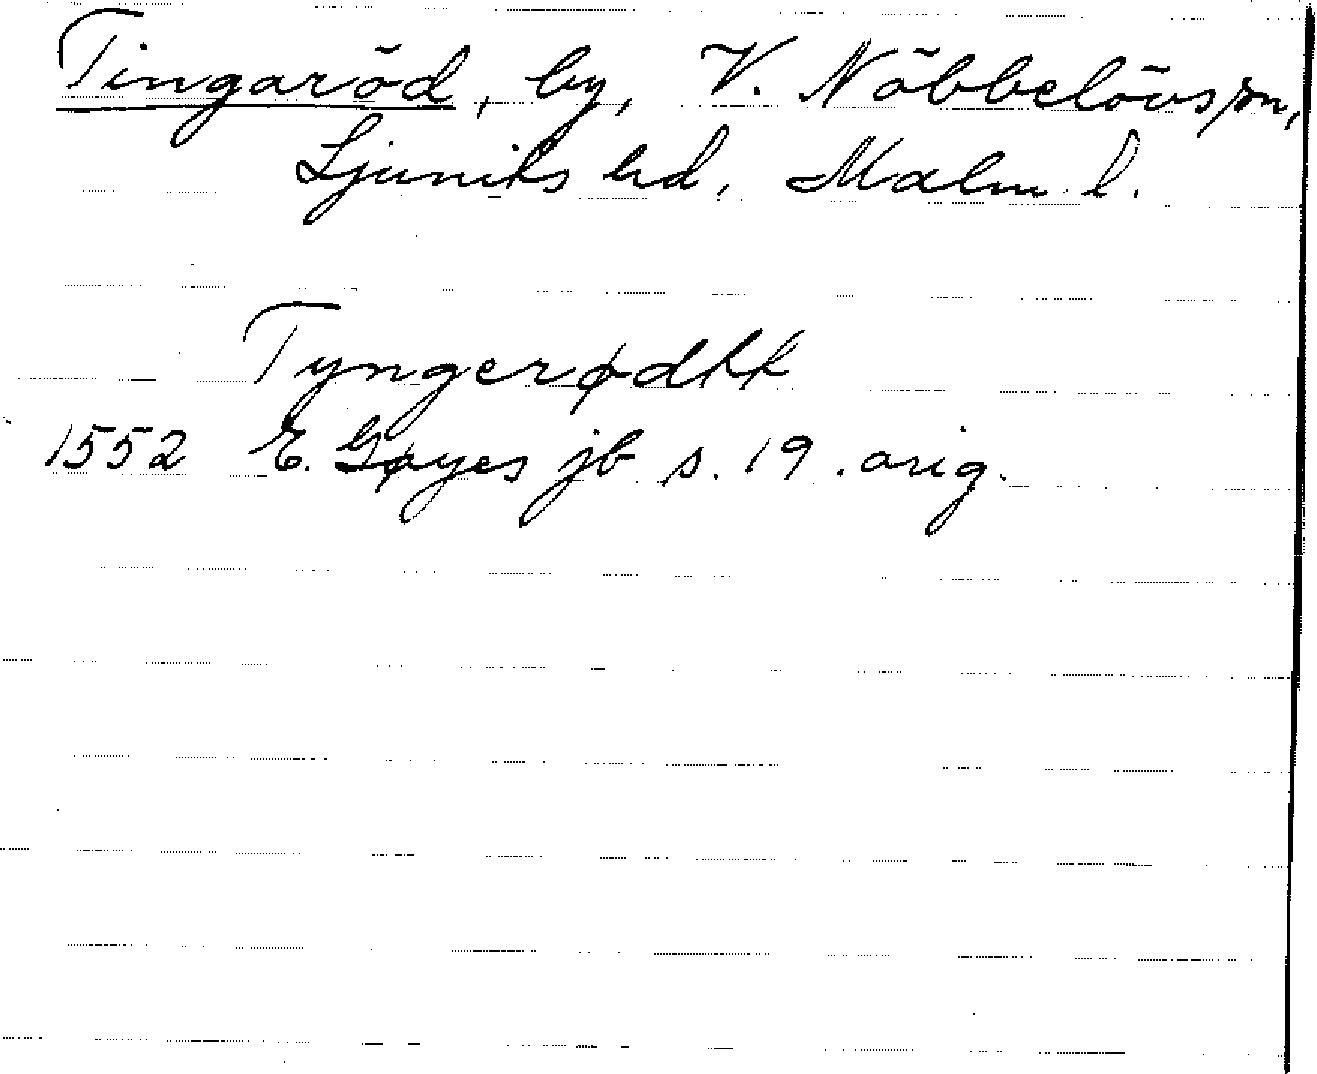 Tingaröd, by, V. Nöbbelövs sn,
Ljunits hd, Malm. l.
Tyngerødtt
1552 E. Gøyes jb s. 19. orig.